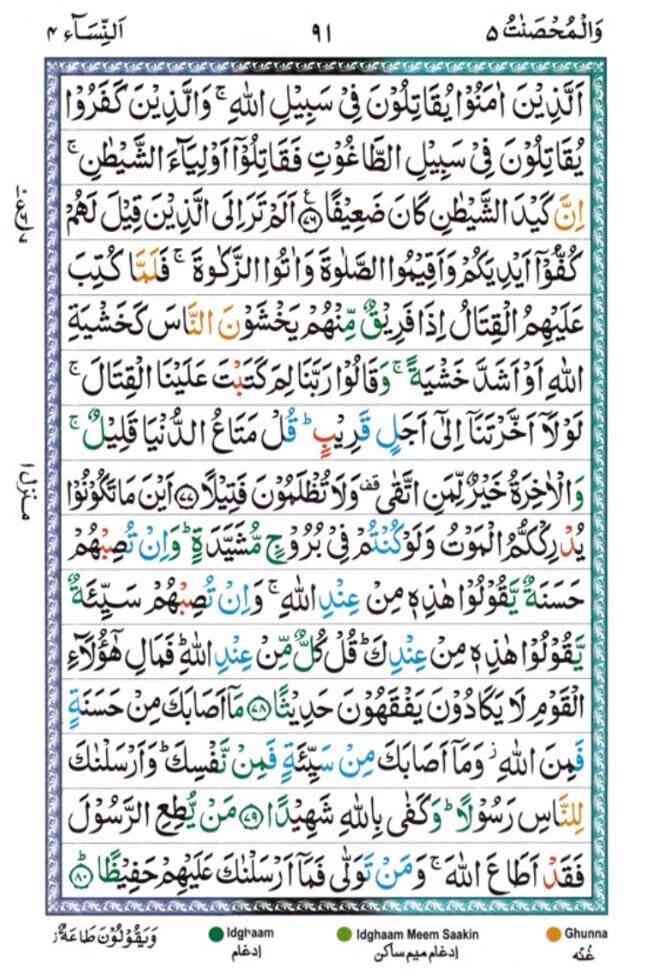 وَالْمُحْصَنٰتُ ۵
۹۱
اَلنِّسَآء ۴
اَلَّذِیْنَ اٰمَنُوْا یُقَاتِلُوْنَ فِیْ سَبِیْلِ اللّٰهِ ۚ وَالَّذِیْنَ كَفَرُوْا
یُقَاتِلُوْنَ فِیْ سَبِیْلِ الطَّاغُوْتِ فَقَاتِلُوْۤا اَوْلِیَآءَ الشَّیْطٰنِ ۚ
اِنَّ كَیْدَ الشَّیْطٰنِ كَانَ ضَعِیْفًا ۧ ﴿۷۶﴾ اَلَمْ تَرَ اِلَى الَّذِیْنَ قِیْلَ لَهُمْ
كُفُّوْۤا اَیْدِیَكُمْ وَاَقِیْمُوا الصَّلٰوةَ وَاٰتُوا الزَّكٰوةَ ۚ فَلَمَّا كُتِبَ
عَلَیْهِمُ الْقِتَالُ اِذَا فَرِیْقٌ مِّنْهُمْ یَخْشَوْنَ النَّاسَ كَخَشْیَةِ
اللّٰهِ اَوْ اَشَدَّ خَشْیَةً ۚ وَقَالُوْا رَبَّنَا لِمَ كَتَبْتَ عَلَیْنَا الْقِتَالَ ۚ
لَوْلَاۤ اَخَّرْتَنَاۤ اِلٰۤى اَجَلٍ قَرِیْبٍ ؕ قُلْ مَتَاعُ الدُّنْیَا قَلِیْلٌ ۚ
وَالْاٰخِرَةُ خَیْرٌ لِّمَنِ اتَّقٰى ۫ وَلَا تُظْلَمُوْنَ فَتِیْلًا ﴿۷۷﴾ اَیْنَ مَا تَكُوْنُوْا
یُدْرِكْكُّمُ الْمَوْتُ وَلَوْ كُنْتُمْ فِیْ بُرُوْجٍ مُّشَیَّدَةٍ ؕ وَاِنْ تُصِبْهُمْ
حَسَنَةٌ یَّقُوْلُوْا هٰذِهٖ مِنْ عِنْدِ اللّٰهِ ۚ وَاِنْ تُصِبْهُمْ سَیِّئَةٌ
یَّقُوْلُوْا هٰذِهٖ مِنْ عِنْدِكَ ؕ قُلْ كُلٌّ مِّنْ عِنْدِ اللّٰهِ ؕ فَمَالِ هٰۤؤُلَآءِ
الْقَوْمِ لَا یَكَادُوْنَ یَفْقَهُوْنَ حَدِیْثًا ﴿۷۸﴾ مَاۤ اَصَابَكَ مِنْ حَسَنَةٍ
فَمِنَ اللّٰهِ ۫ وَمَاۤ اَصَابَكَ مِنْ سَیِّئَةٍ فَمِنْ نَّفْسِكَ ؕ وَاَرْسَلْنٰكَ
لِلنَّاسِ رَسُوْلًا ؕ وَكَفٰى بِاللّٰهِ شَهِیْدًا ﴿۷۹﴾ مَنْ یُّطِعِ الرَّسُوْلَ
فَقَدْ اَطَاعَ اللّٰهَ ۚ وَمَنْ تَوَلّٰى فَمَاۤ اَرْسَلْنٰكَ عَلَیْهِمْ حَفِیْظًا ﴿۸۰﴾ؕ
منزل ۱
Ghunna
غُنّه
Idghaam Meem Saakin
إدغام ميم ساكن
Idghaam
إدغام
وَیَقُوْلُوْنَ طَاعَةٌ ؗ